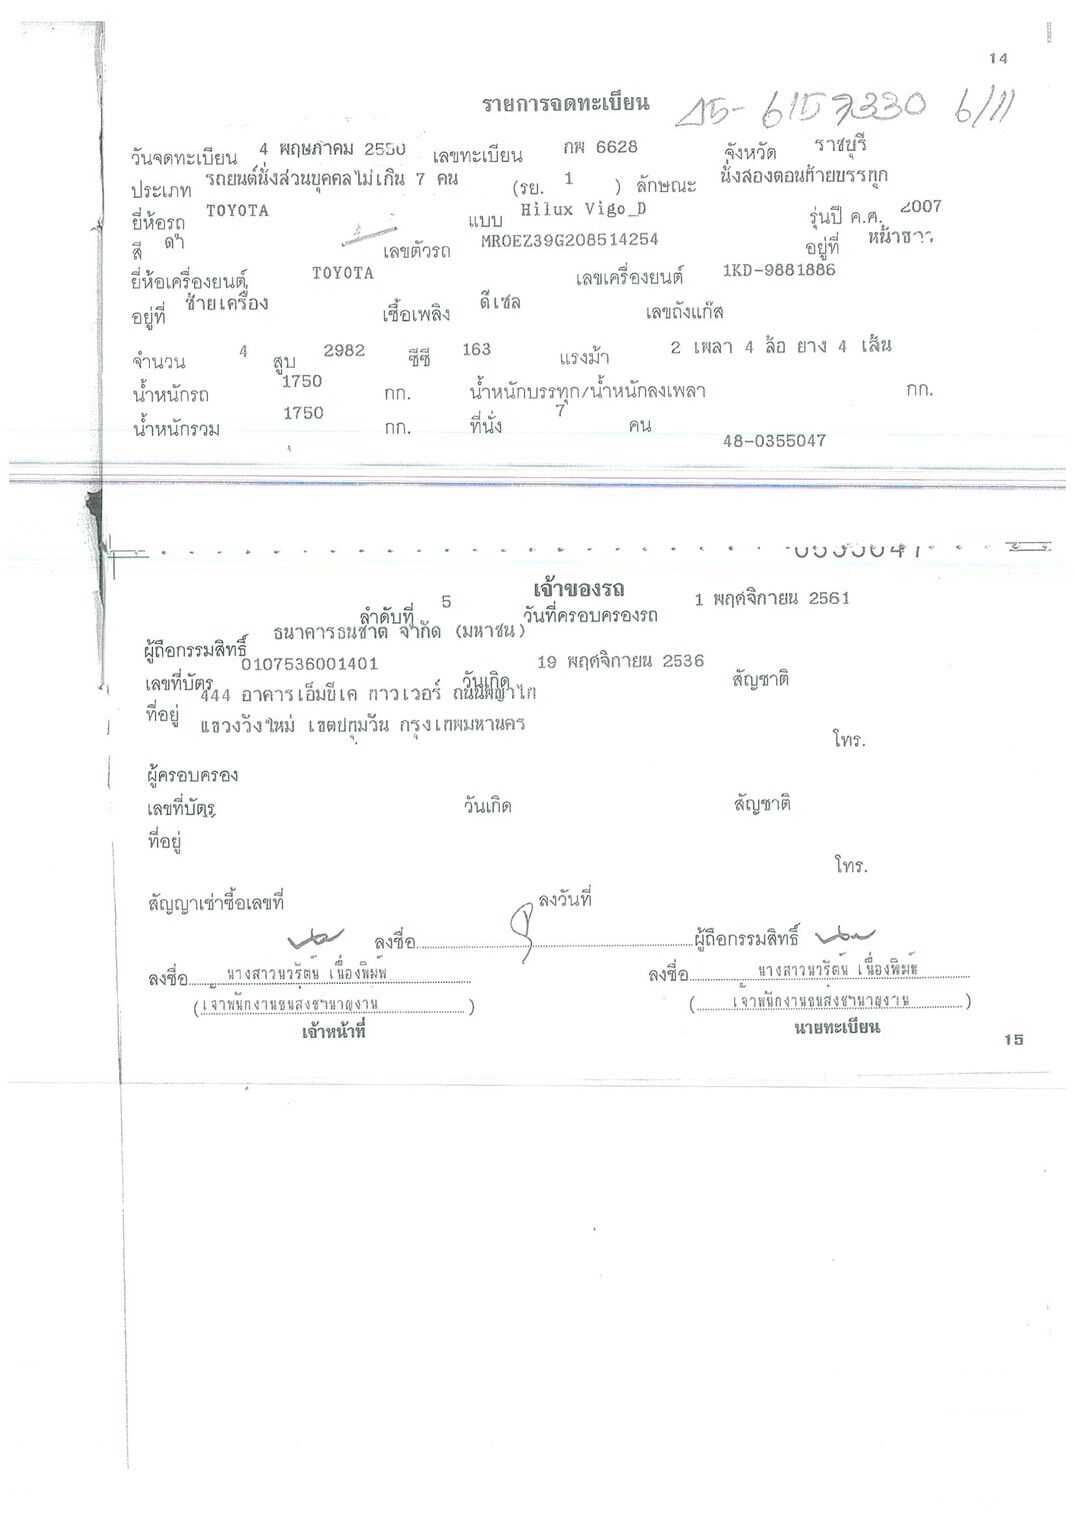 14
รายการจดทะเบียน 15-6157330 6/11
วันจดทะเบียน 4 พฤษภาคม 2550 เลขทะเบียน กพ 6628 จังหวัด ราชบุรี
ประเภท รถยนต์นั่งส่วนบุคคลไม่เกิน 7 คน (รย. 1 ) ลักษณะ นั่งสองตอนท้ายบรรทุก
ยี่ห้อรถ TOYOTA แบบ Hilux Vigo_D รุ่นปี ค.ศ. 2007
สี ดำ เลขตัวรถ MROEZ39G208514254 อยู่ที่ หน้าขวา
ยี่ห้อเครื่องยนต์ TOYOTA เลขเครื่องยนต์ 1KD-9881886
อยู่ที่ ซ้ายเครื่อง เชื้อเพลิง ดีเซล เลขถังแก๊ส
จำนวน 4 สูบ 2982 ซีซี 163 แรงม้า 2 เพลา 4 ล้อ ยาง 4 เส้น
น้ำหนักรถ 1750 กก. น้ำหนักบรรทุก/น้ำหนักลงเพลา กก.
น้ำหนักรวม 1750 กก. ที่นั่ง 7 คน
48-0355047
0355047
เจ้าของรถ
ลำดับที่ 5 วันที่ครอบครองรถ 1 พฤศจิกายน 2561
ผู้ถือกรรมสิทธิ์ ธนาคารธนชาต จำกัด (มหาชน)
เลขที่บัตร 0107536001401 วันเกิด 19 พฤศจิกายน 2536 สัญชาติ
ที่อยู่ 444 อาคารเอ็มบีเค ทาวเวอร์ ถนนพญาไท
แขวงวังใหม่ เขตปทุมวัน กรุงเทพมหานคร
โทร.
ผู้ครอบครอง
เลขที่บัตร วันเกิด สัญชาติ
ที่อยู่
โทร.
สัญญาเช่าซื้อเลขที่ ลงวันที่
ลงชื่อ ผู้ถือกรรมสิทธิ์
ลงชื่อ นางสาวนวรัตน์ เนื่องพิมพ์ ลงชื่อ นางสาวนวรัตน์ เนื่องพิมพ์
(เจ้าพนักงานขนส่งชำนาญงาน) (เจ้าพนักงานขนส่งชำนาญงาน)
เจ้าหน้าที่ นายทะเบียน
15